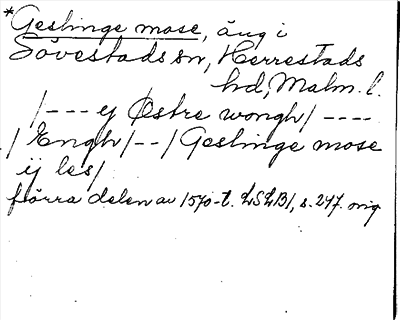 *Geslinge mose, äng i
Sövestads sn, Herrestads
hd, Malm. l.
/---ej Østre wongh/----
/Engh/--/Geslinge mose
ij les/
förra delen av 1570-t. LSLB1, s. 247. orig